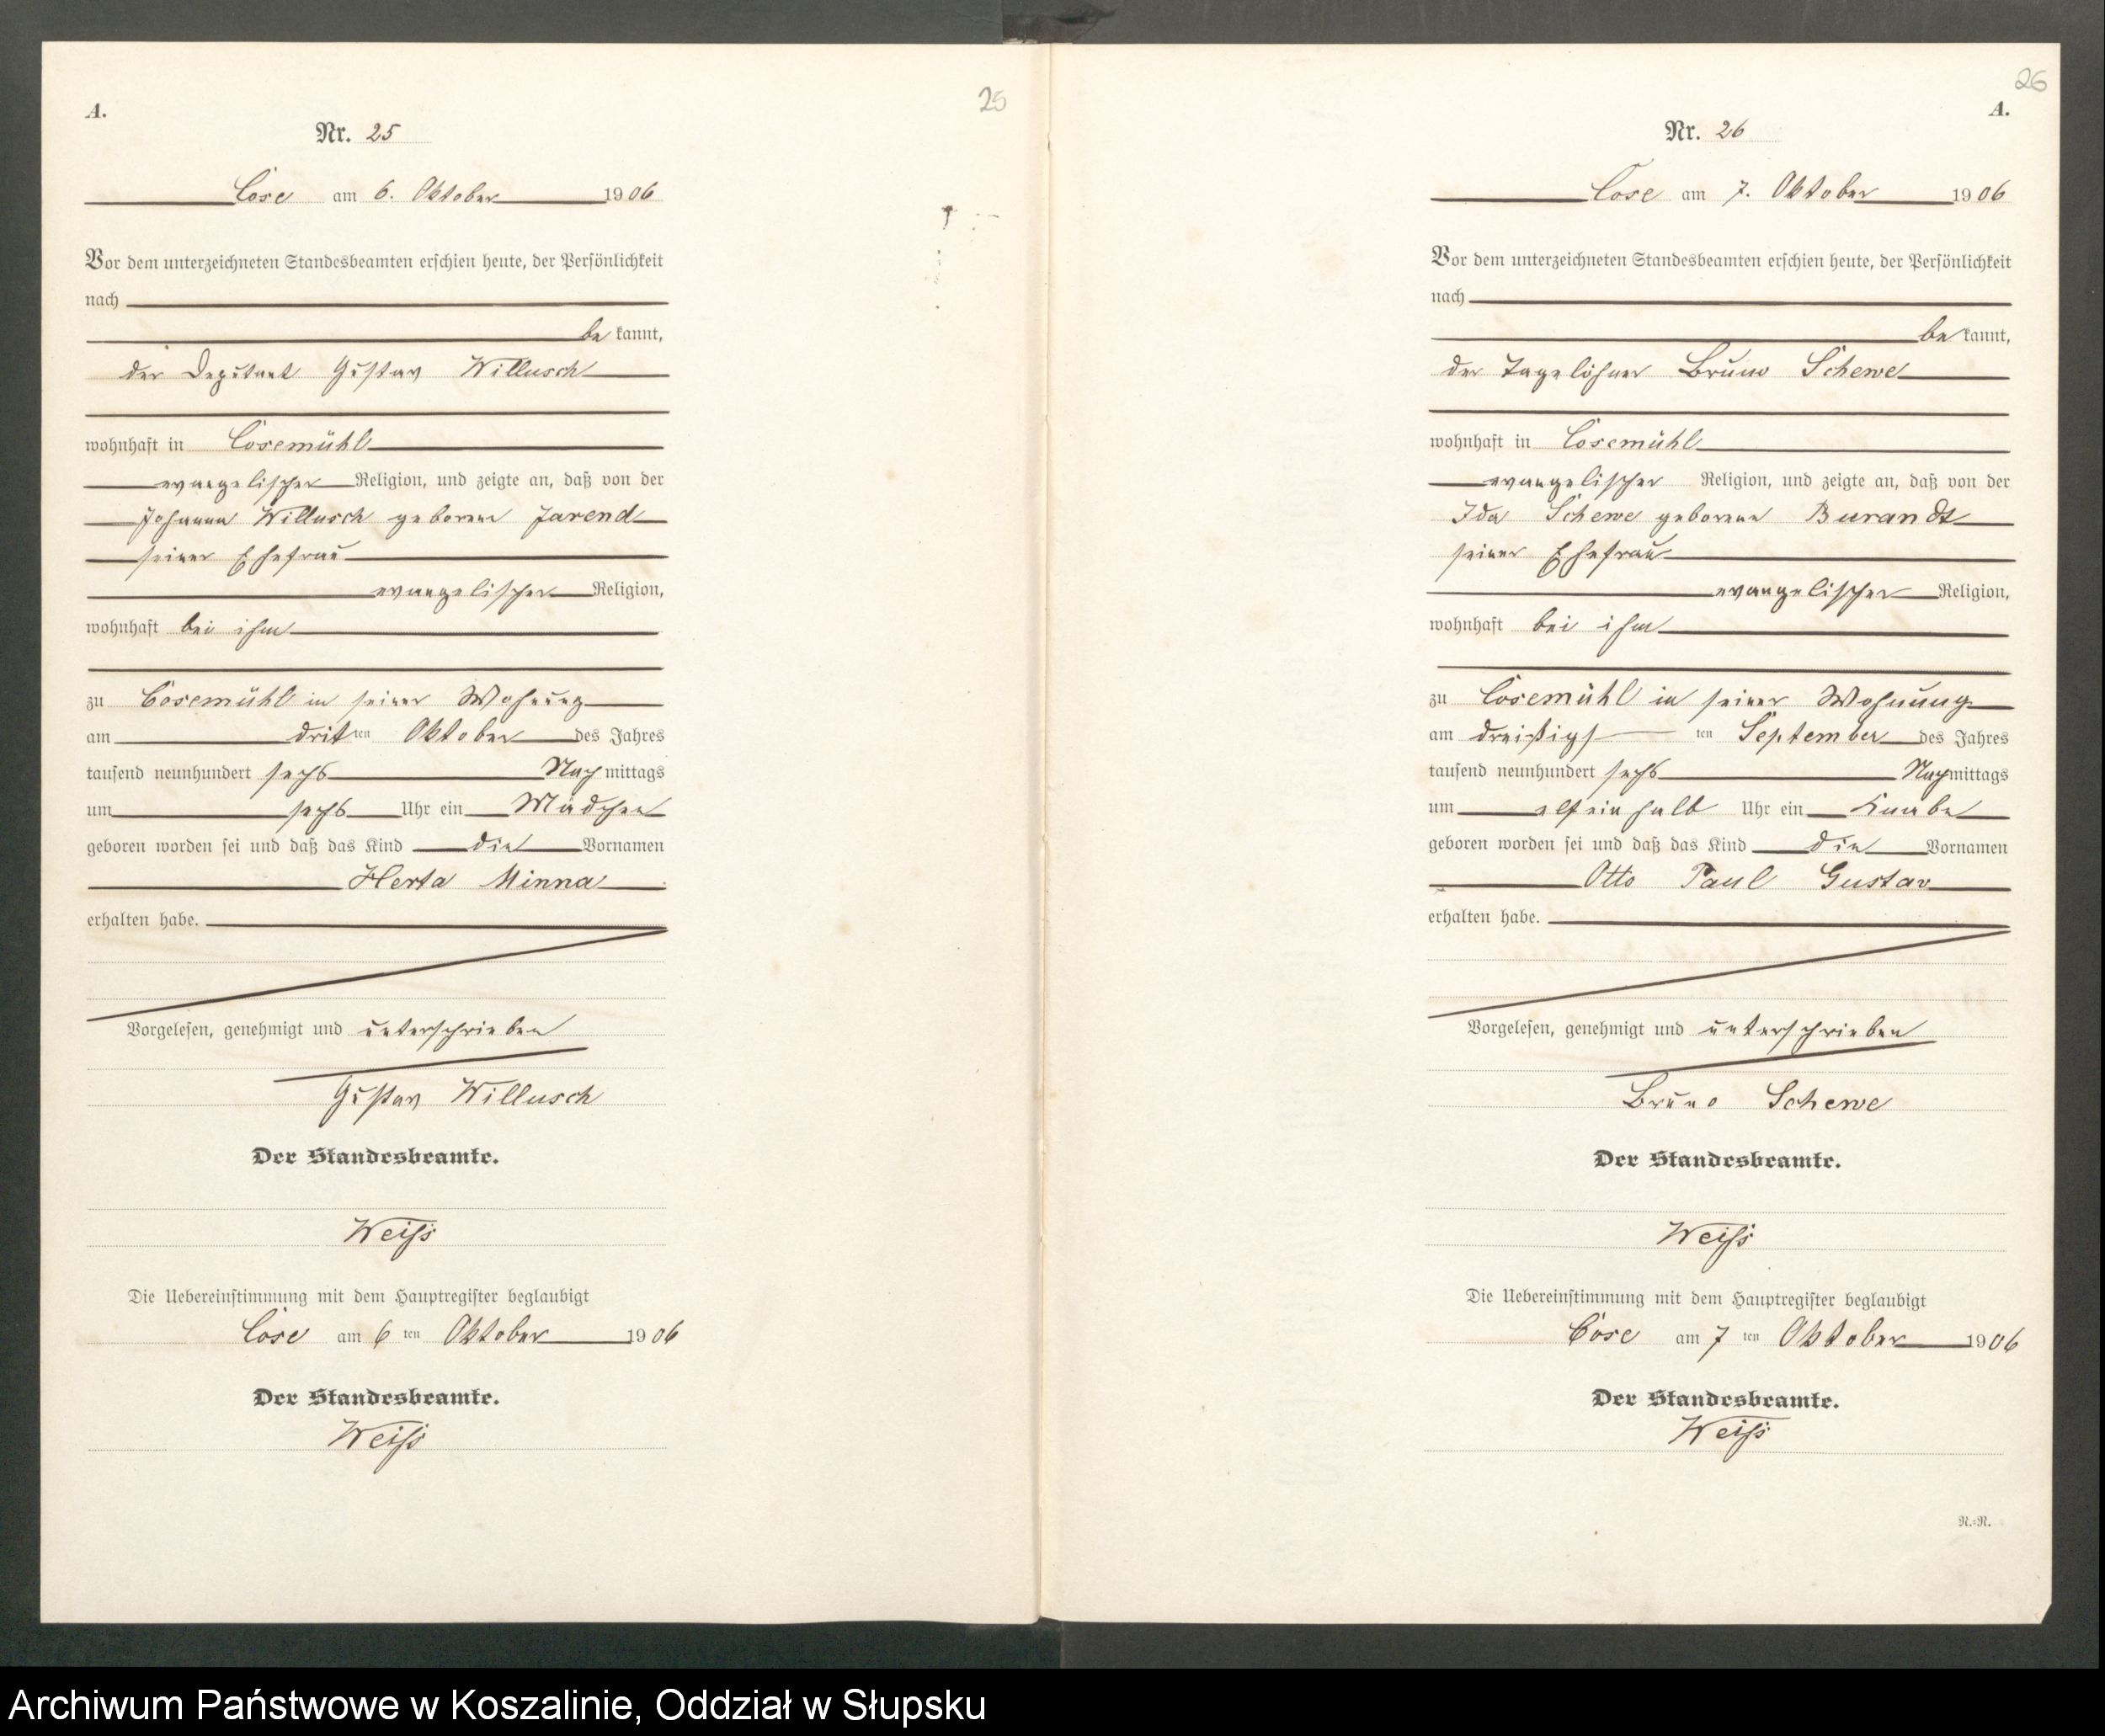 25
A.
Nr. 25
Cose am 6. Oktober 1906
Vor dem unterzeichneten Standesbeamten erschien heute, der Persönlichkeit
nach
be kannt,
der Deputant Gustav Willusch
wohnhaft in Cosemühl
evangelischer Religion, und zeigte an, daß von der
Johanna Willusch geborene Jarend
seiner Ehefrau
evangelischer Religion,
wohnhaft bei ihm
zu Cosemühl in seiner Wohnung
am dritten Oktober des Jahres
tausend neunhundert sechs Nachmittags
um sechs Uhr ein Mädchen
geboren worden sei und daß das Kind die Vornamen
Herta Minna
erhalten habe.
Vorgelesen, genehmigt und unterschrieben
Gustav Willusch
Der Standesbeamte.
Weiß
Die Uebereinstimmung mit dem Hauptregister beglaubigt
Cose am 6 ten Oktober 1906
Der Standesbeamte.
Weiß
26
A.
Nr. 26
Cose am 7. Oktober 1906
Vor dem unterzeichneten Standesbeamten erschien heute, der Persönlichkeit
nach
be kannt,
der Tagelöhner Bruno Schewe
wohnhaft in Cosemühl
evangelischer Religion, und zeigte an, daß von der
Ida Schewe geborene Burandt
seiner Ehefrau
evangelischer Religion,
wohnhaft bei ihm
zu Cosemühl in seiner Wohnung
am dreißigsten September des Jahres
tausend neunhundert sechs Nachmittags
um elfeinhalb Uhr ein Knabe
geboren worden sei und daß das Kind die Vornamen
Otto Paul Gustav
erhalten habe.
Vorgelesen, genehmigt und unterschrieben
Bruno Schewe
Der Standesbeamte.
Weiß
Die Uebereinstimmung mit dem Hauptregister beglaubigt
Cose am 7 ten Oktober 1906
Der Standesbeamte.
Weiß
R.=R.
Archiwum Państwowe w Koszalinie, Oddział w Słupsku